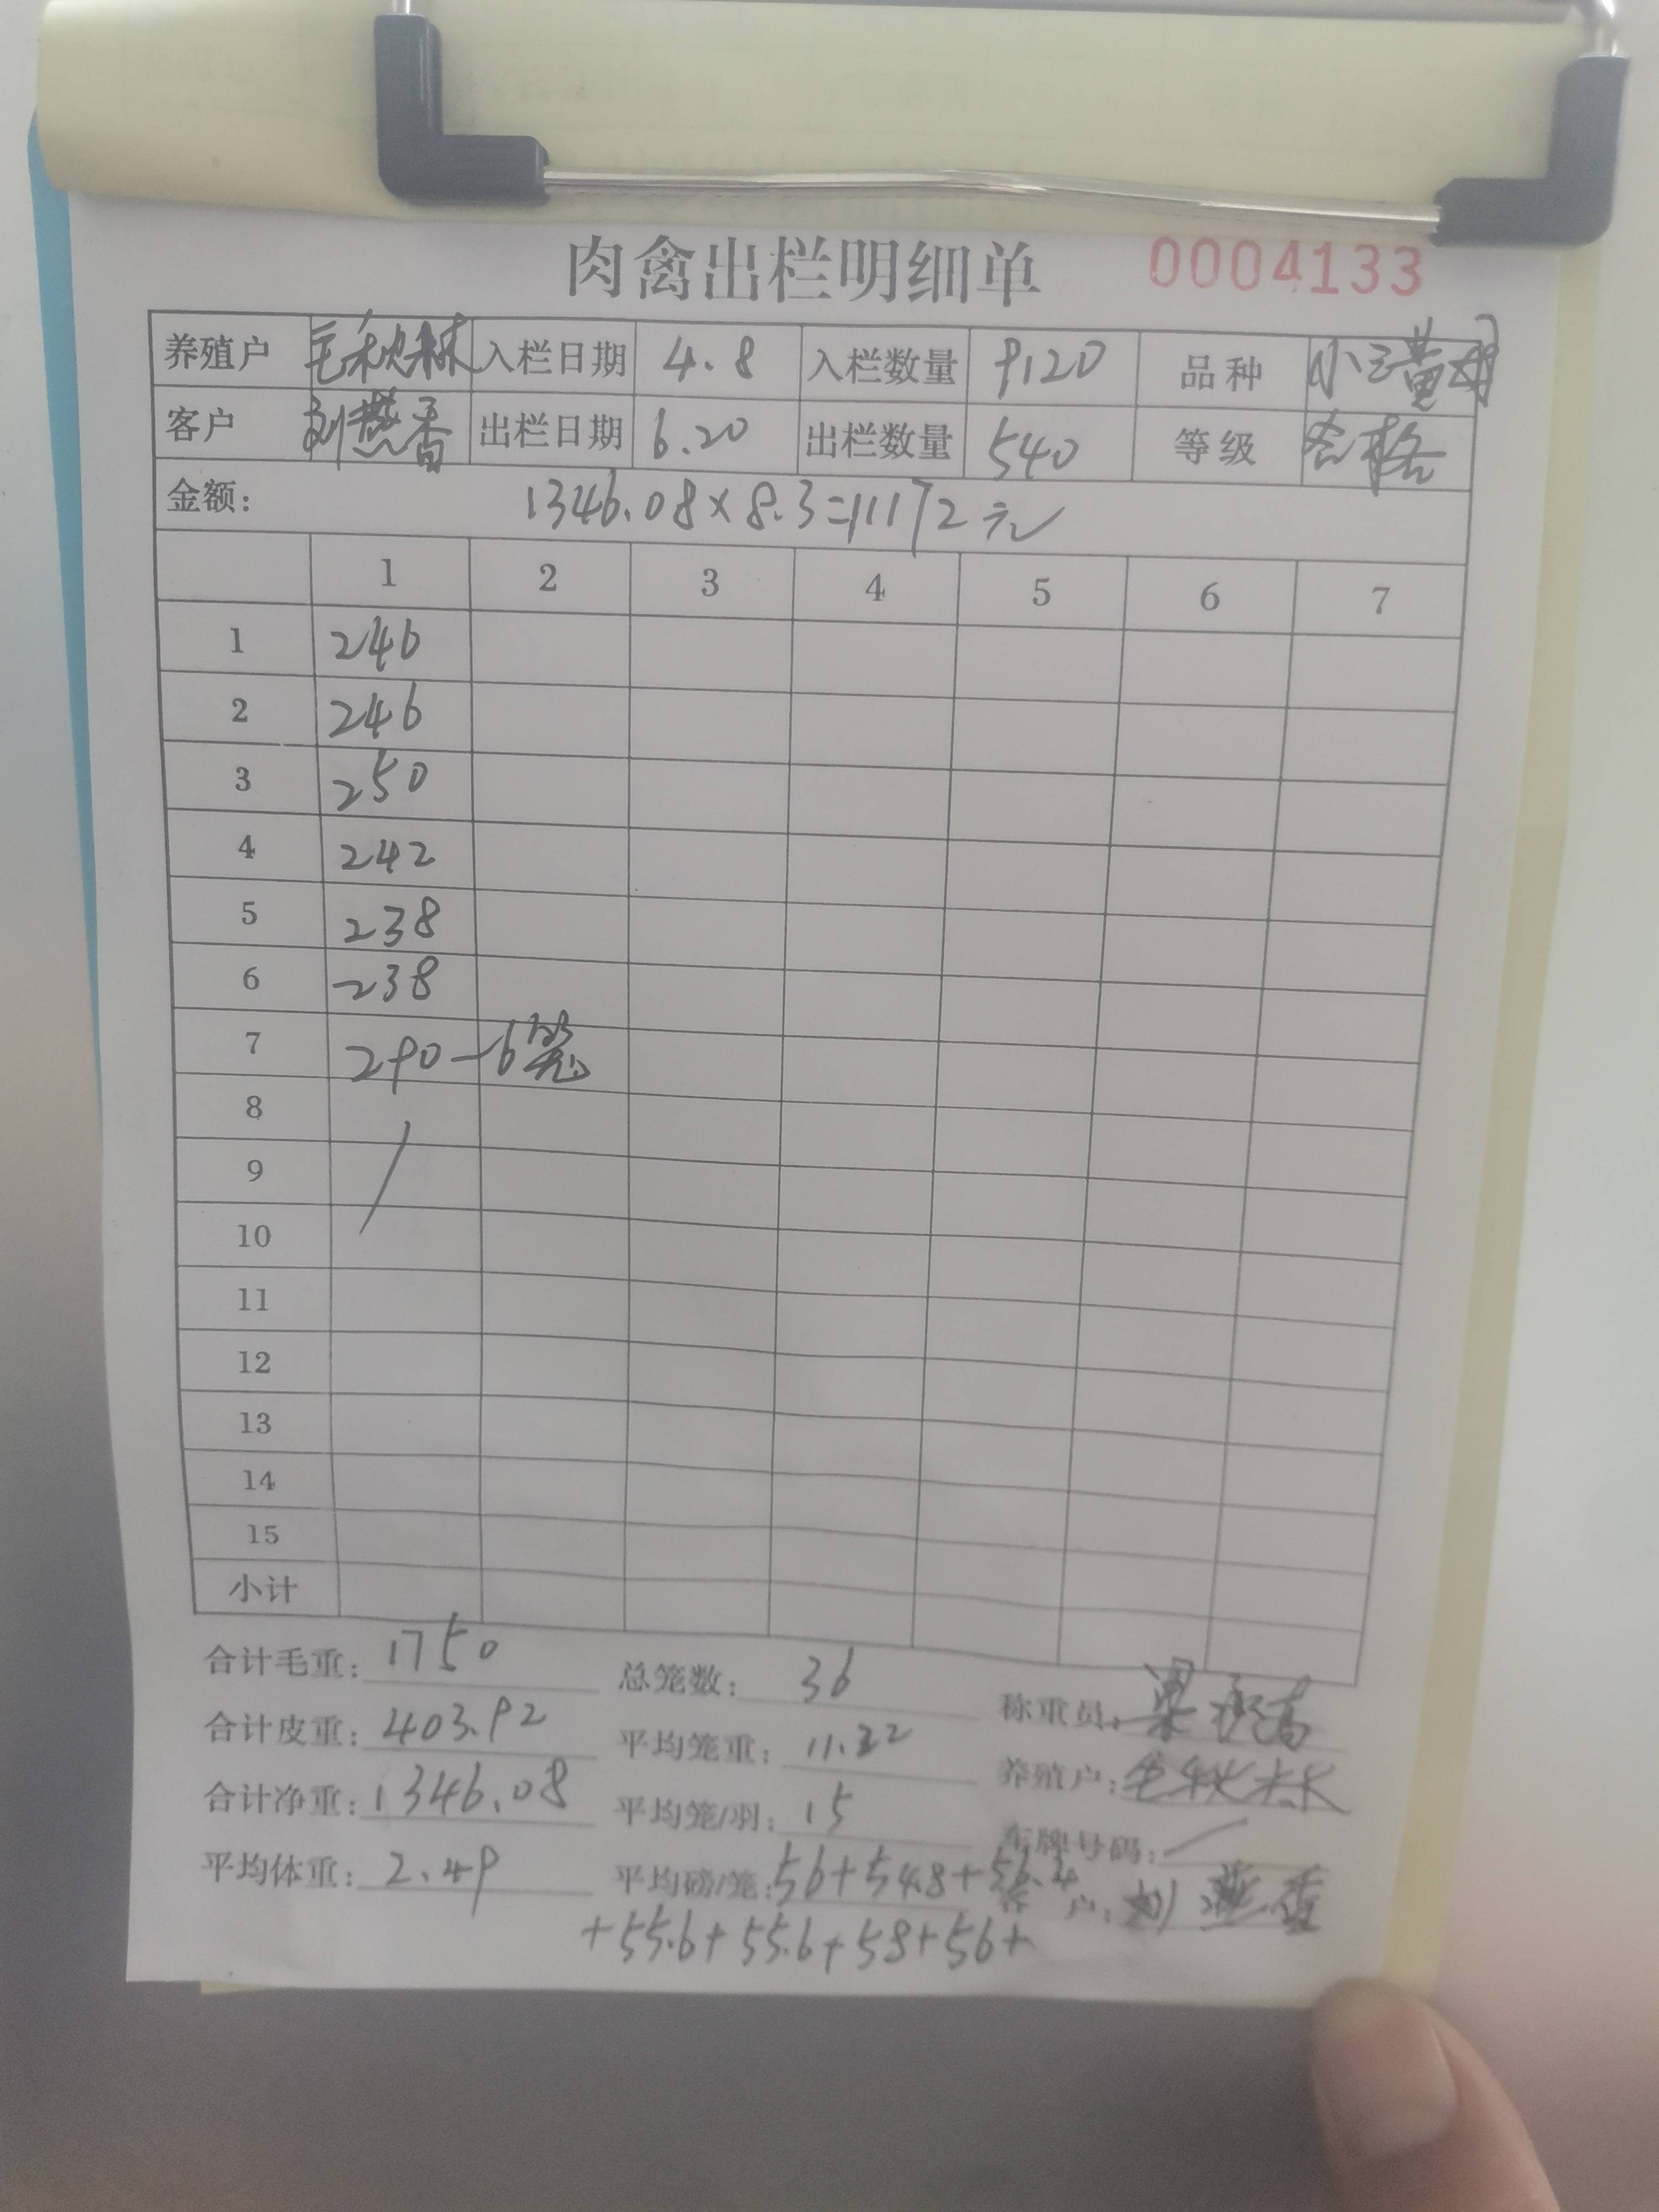 肉禽出栏明细单 0004133
养殖户 毛秋林 入栏日期 4.8 入栏数量 9120 品种 小三黄
客户 刘燕香 出栏日期 6.20 出栏数量 540 等级 合格
金额: 1346.08×8.3=11172元
1 2 3 4 5 6 7
1 246
2 246
3 250
4 242
5 238
6 238
7 290-6笼
8
9
10
11
12
13
14
15
小计
合计毛重: 1750 总笼数: 36 称重员:
合计皮重: 403.92 平均笼重: 11.22 养殖户: 毛秋林
合计净重: 1346.08 平均笼/羽: 15 车牌号码: /
平均体重: 2.49 平均磅/笼: 56+54.8+56.4 客户: 刘燕香
+55.6+55.6+58+56+